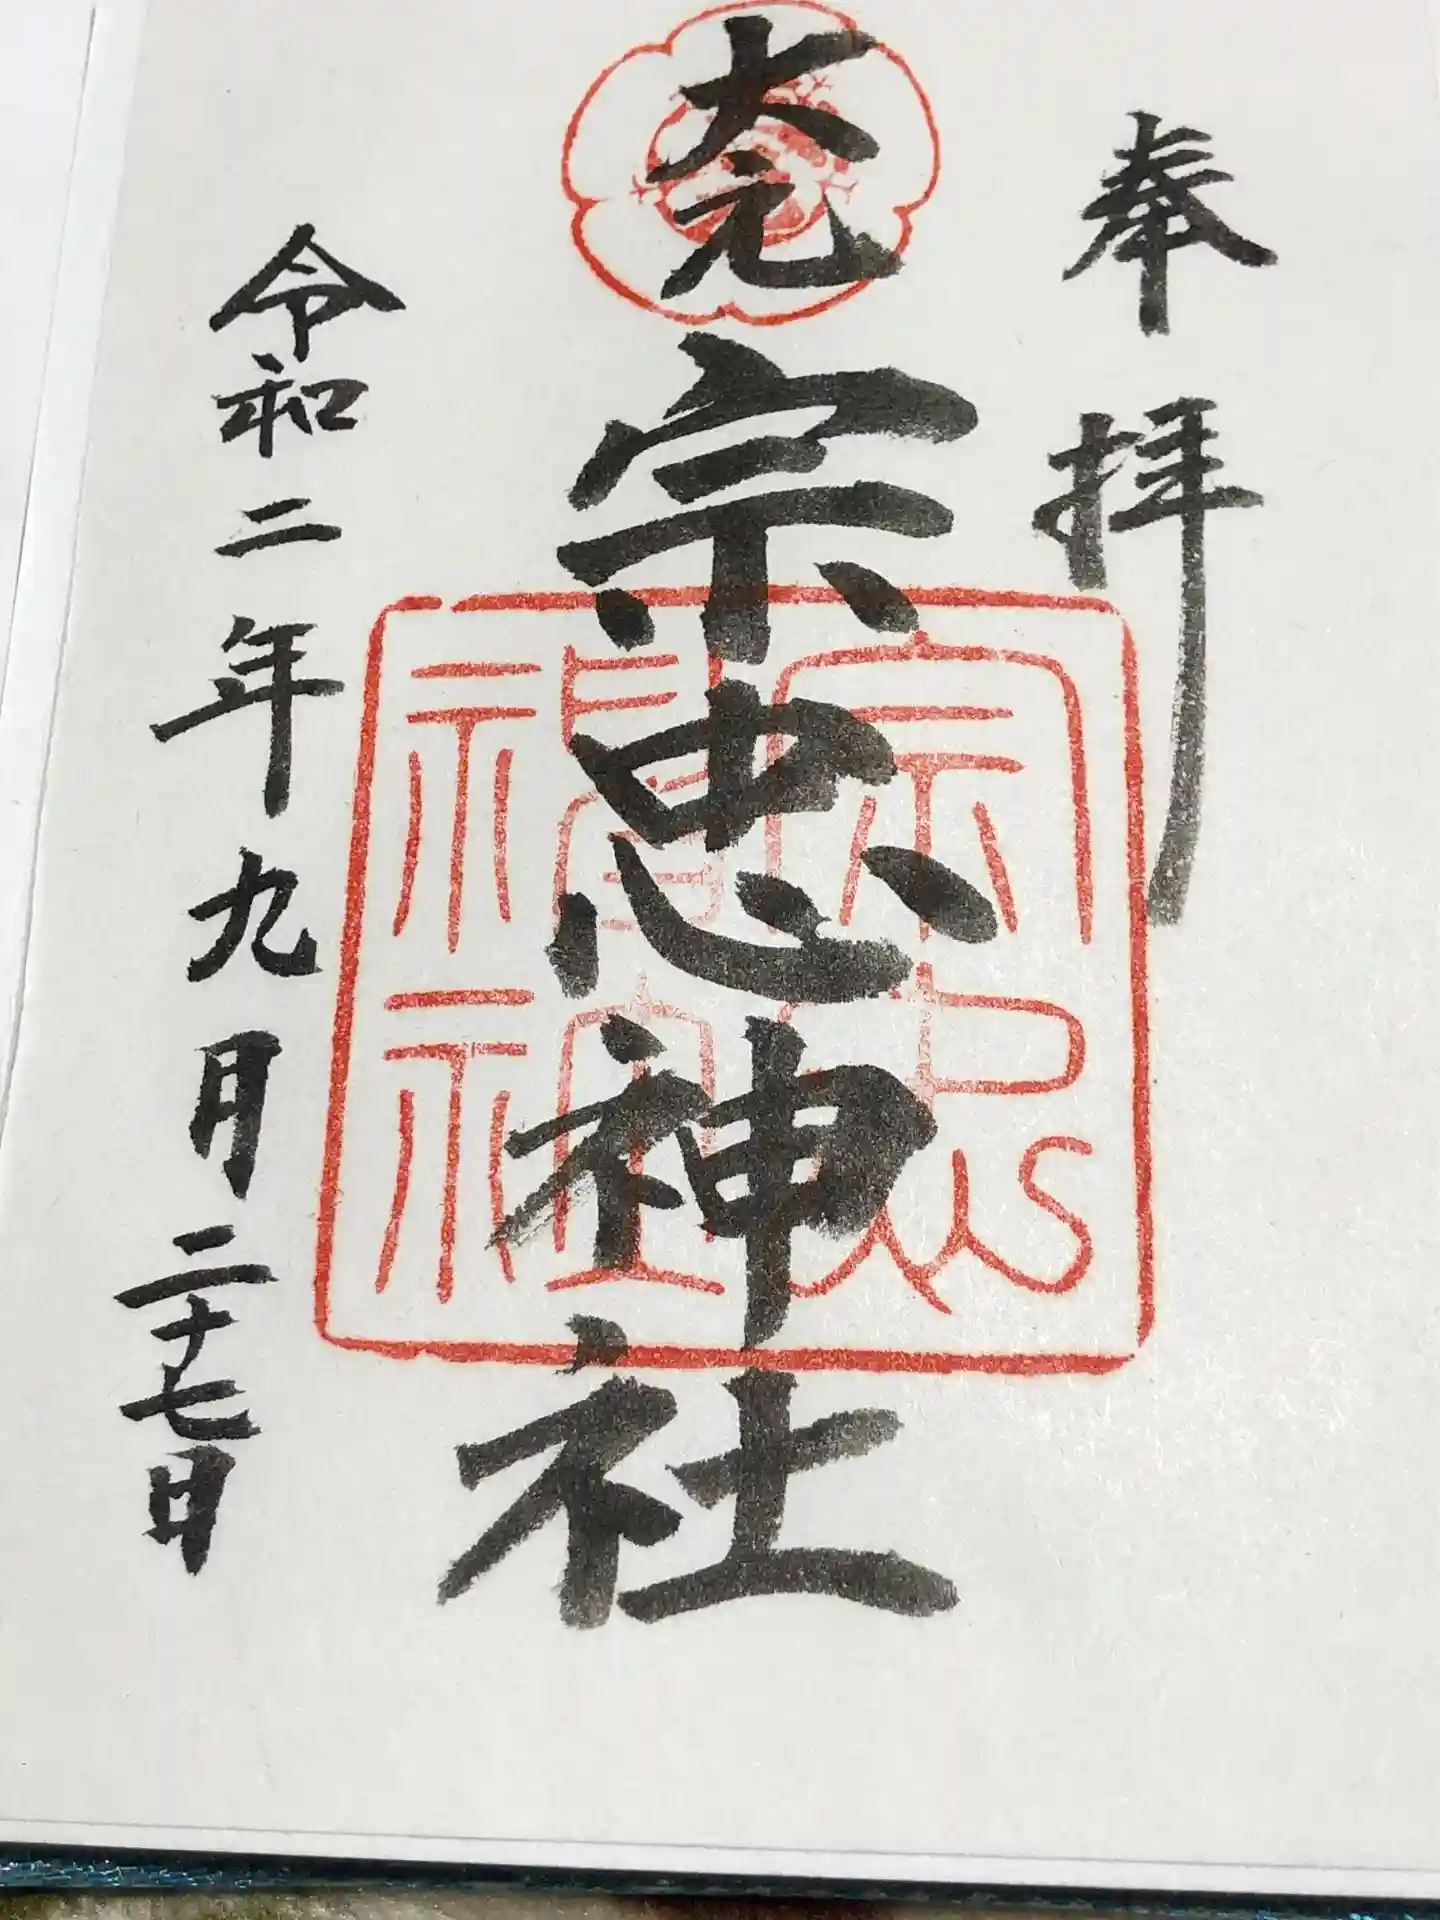 奉拝
大元
宗忠神社
宗忠
神社
令和二年九月二十七日